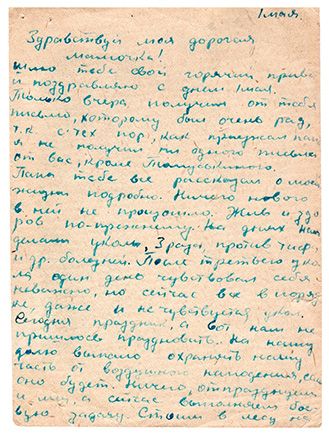 1 мая.
Здравствуй моя дорогая
мамочка!
Шлю тебе свой горячий приве
и поздравляю с днем 1 мая.
Только вчера получил от тебя
письмо, которому был очень рад,
т.к. с тех пор, как приезжал пап
я не получил ни одного письма
от вас, кроме
Папа тебе все рассказал о моей
жизни подробно. Ничего нового
в ней не произошло. Жив и здо
ров по-прежнему. На днях нам
делали уколы, 3 раза, против тиф.
и др. болезней. После третьего уко
ла один день чувствовал себя
неважно, но сейчас все в поряд
ке, даже и не чувствуется укол.
Сегодня праздник, а вот нам не
пришлось праздновать. На нашу
долю выпало охранять нашу
часть от воздушного нападения,
оно будет. Ничего, отпразднуем
и мы, а сейчас выполняем бое
вую задачу. Стоим в лесу на